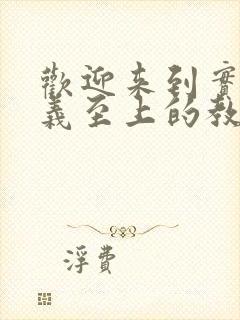 歡迎来到實
義至上的教
浮費